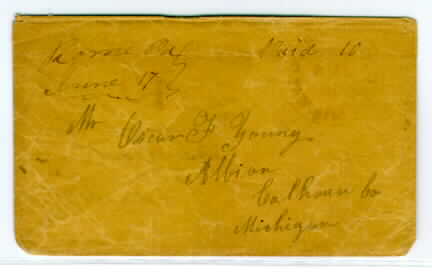 Rome Pa Paid 10
June 17
Mr
Oscar F Young
Albion
Calhoun Co
Michigan